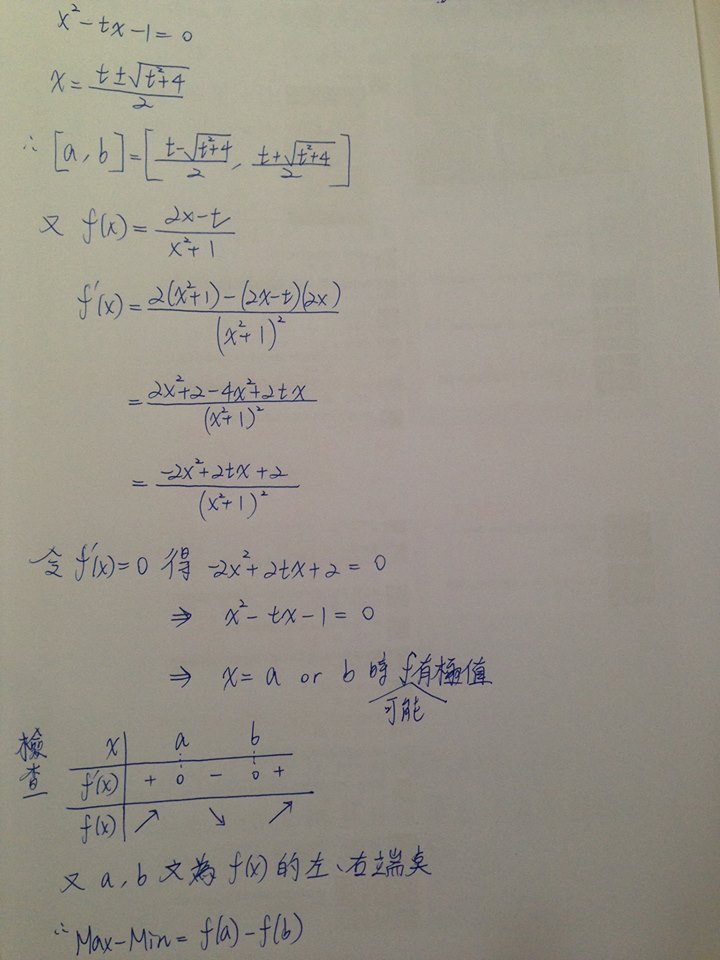 x²-tx-1=0
x=(t±√(t²+4))/2
∴ [a,b]=[(t-√(t²+4))/2, (t+√(t²+4))/2]
又 f(x)=(2x-t)/(x²+1)
f'(x)=(2(x²+1)-(2x-t)(2x))/(x²+1)²
=(2x²+2-4x²+2tx)/(x²+1)²
=(-2x²+2tx+2)/(x²+1)²
令 f'(x)=0 得 -2x²+2tx+2=0
⇒ x²-tx-1=0
⇒ x=a or b 時 f有極值
可能
檢查
x | a b
f'(x) | + 0 - 0 +
f(x) | ↗ ↘ ↗
又 a,b 又為 f(x) 的左、右端點
∴ Max-Min=f(a)-f(b)